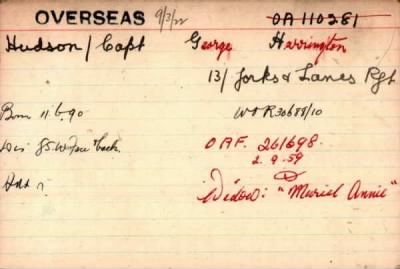 OVERSEAS 9/3/22 OA 110381
Hudson / Capt George Harrington
13/ Yorks & Lancs Rgt
Born 11.6.90 WOR 30688/10
Dis GSW Face & back. OAF. 261698.
2.9.59
D
Widow: "Muriel Annie"